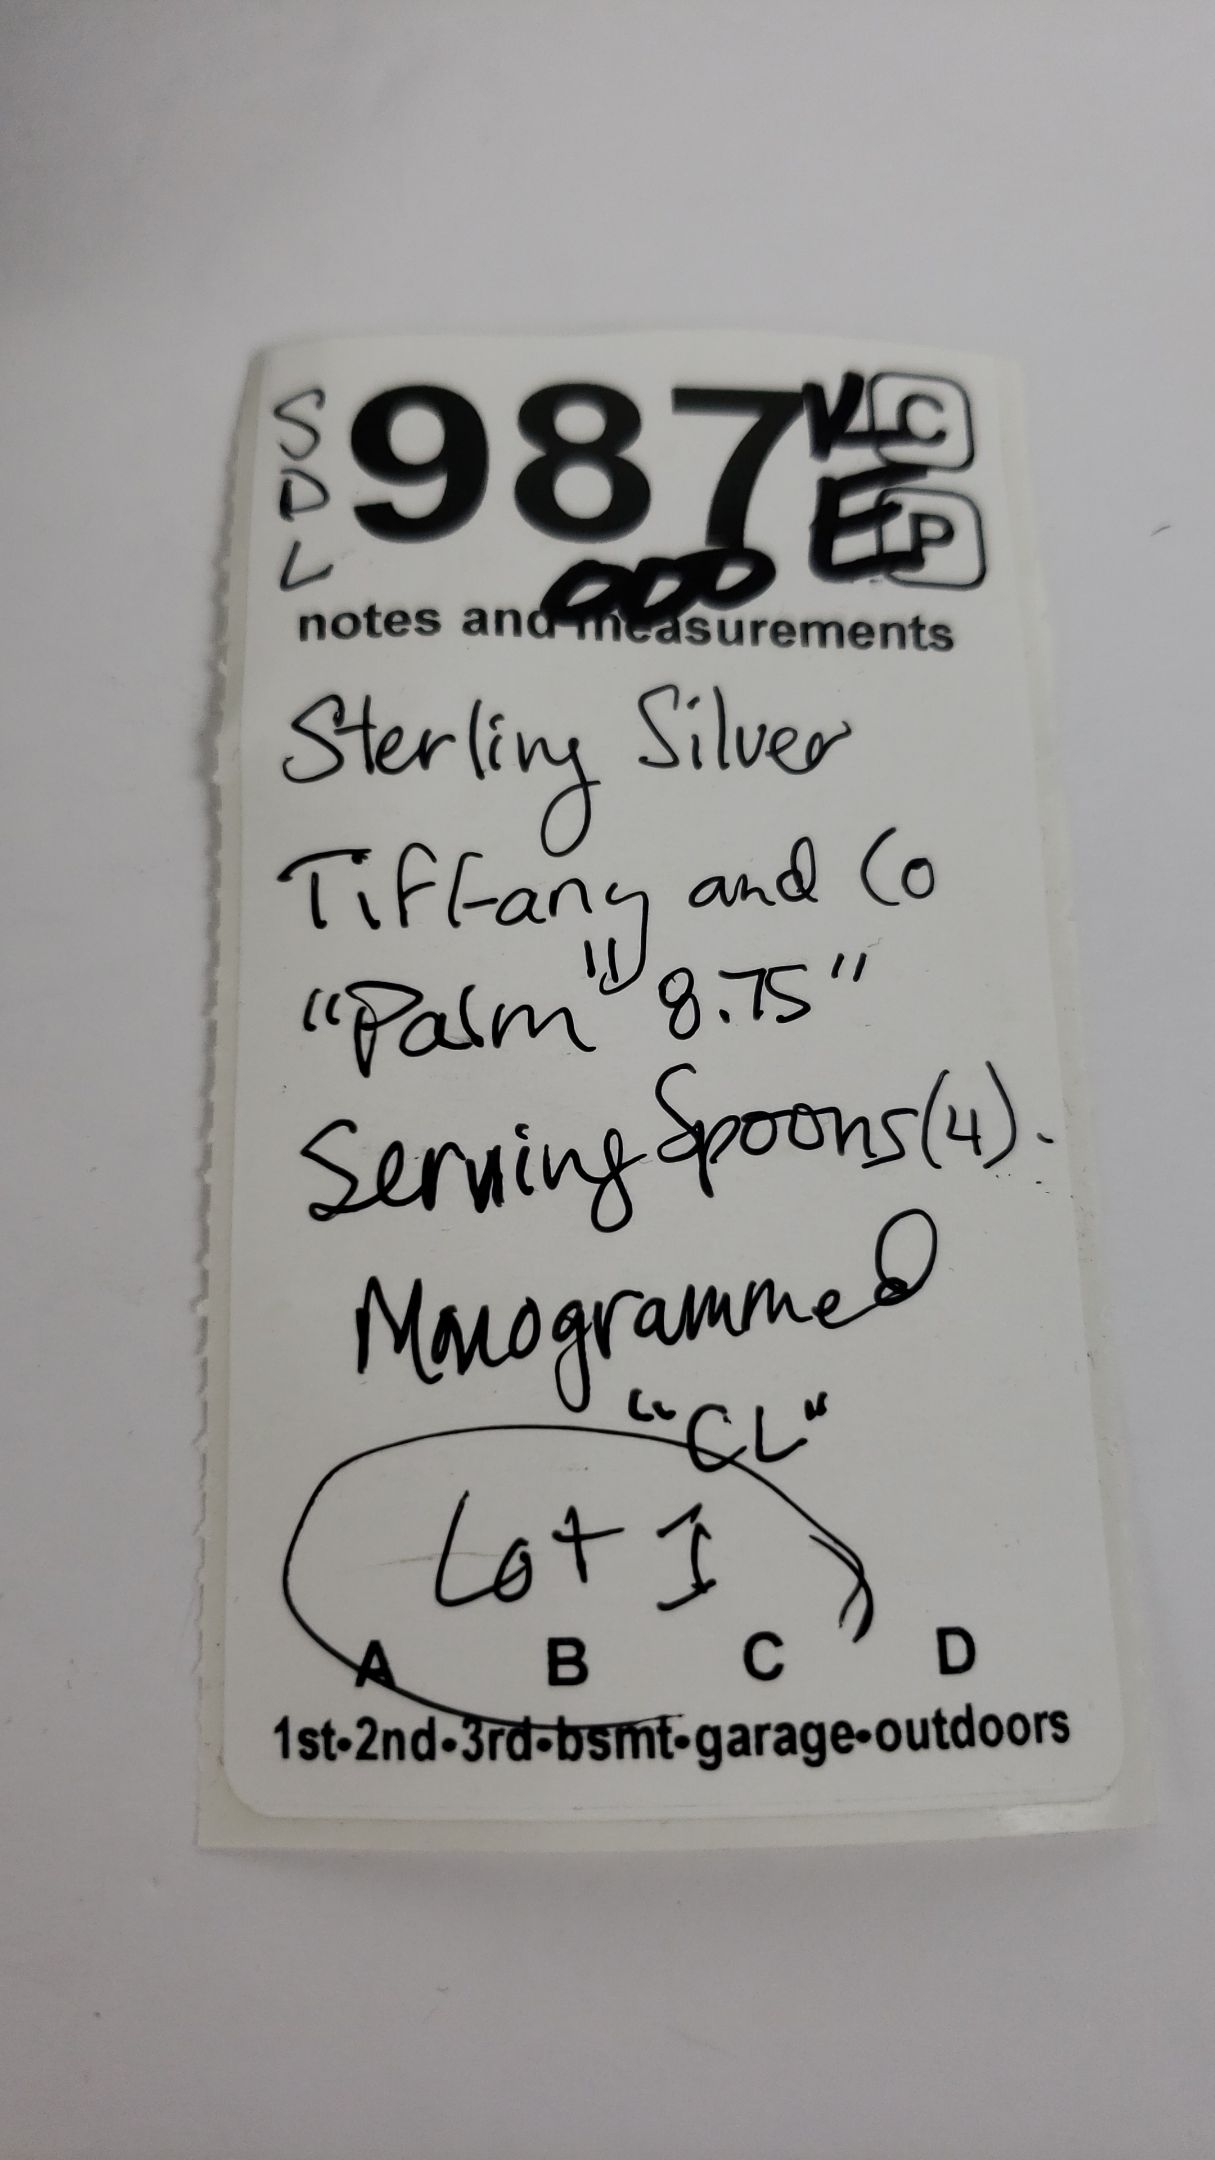 S
D
L
987
V
C
E
P
000
notes and measurements
Sterling Silver
Tiffany and Co
"Palm" 8.75"
Serving Spoons (4).
Monogrammed
"CL"
Lot I
A B C D
1st•2nd•3rd•bsmt•garage•outdoors